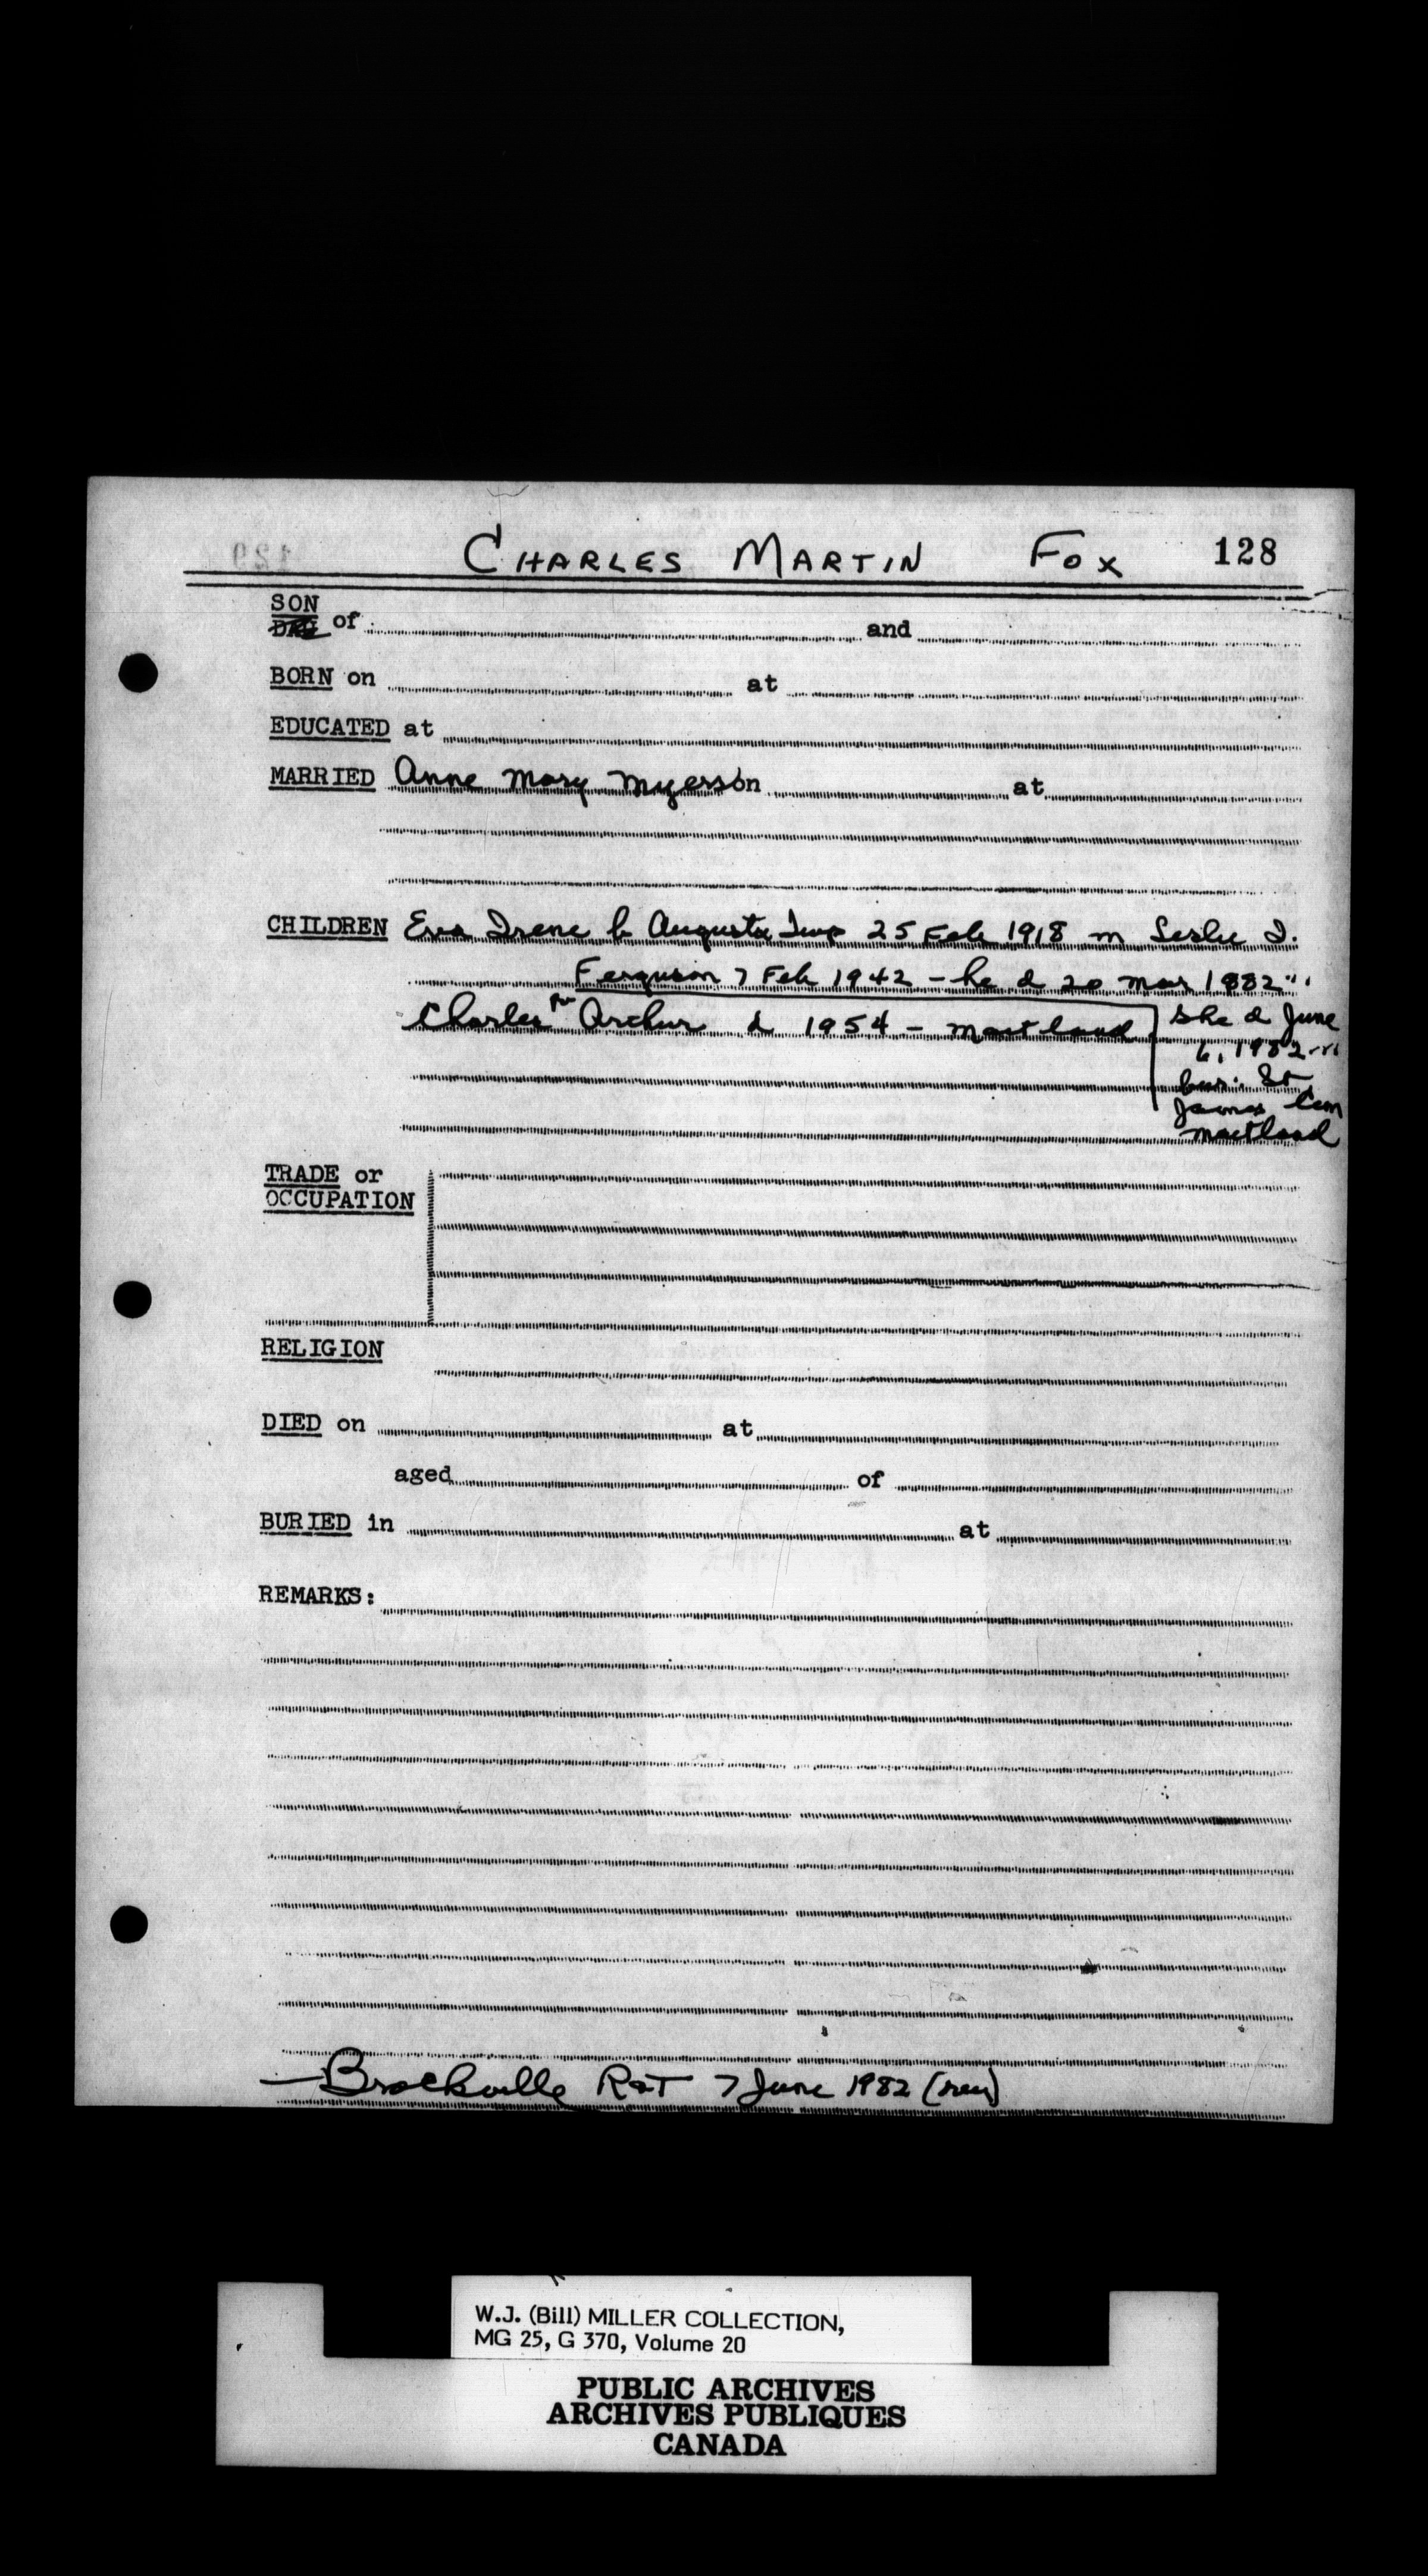 CHARLES MARTIN FOX 128
SON
DAU of and
BORN on at
EDUCATED at
MARRIED Anne Mary Myerson at
CHILDREN Eva Irene b Augusta Twp 25 Feb 1918 m Leslie I.
Ferguson 7 Feb 1942 - he d 20 Mar 1982
Charles Archer d 1954 - Maitland
She d June
6, 1982
bur: St
James Cem
Maitland
TRADE or
OCCUPATION
RELIGION
DIED on at
aged of
BURIED in at
REMARKS:
— Brockville R&T 7 June 1982
W.J. (Bill) MILLER COLLECTION,
MG 25, G 370, Volume 20
PUBLIC ARCHIVES
ARCHIVES PUBLIQUES
CANADA